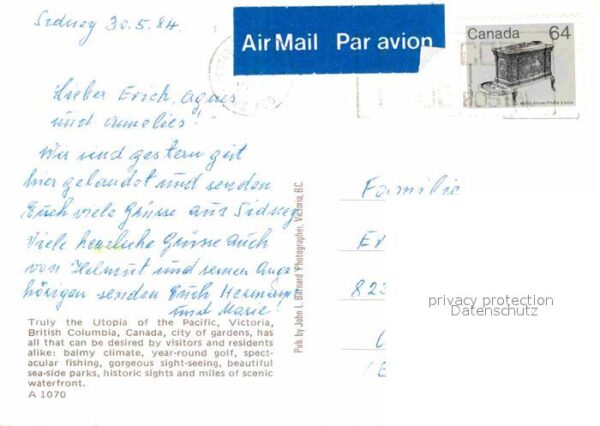 Sidney 30.5.84.
Air Mail Par avion
Canada 64
Lieber Erich, Agnes
und Annelies!
Wir sind gestern gut
hier gelandet und senden
Euch viele Grüsse aus Sidney
Viele herzliche Grüsse auch
von Helmut und seinen Ange
hörigen senden Euch Hermann
und Marie!
Familie
Er
823
privacy protection
Datenschutz
Pub. by John L. Barnard Photographer, Victoria, B.C.
Truly the Utopia of the Pacific, Victoria,
British Columbia, Canada, city of gardens, has
all that can be desired by visitors and residents
alike: balmy climate, year-round golf, spect-
acular fishing, gorgeous sight-seeing, beautiful
sea-side parks, historic sights and miles of scenic
waterfront.
A 1070